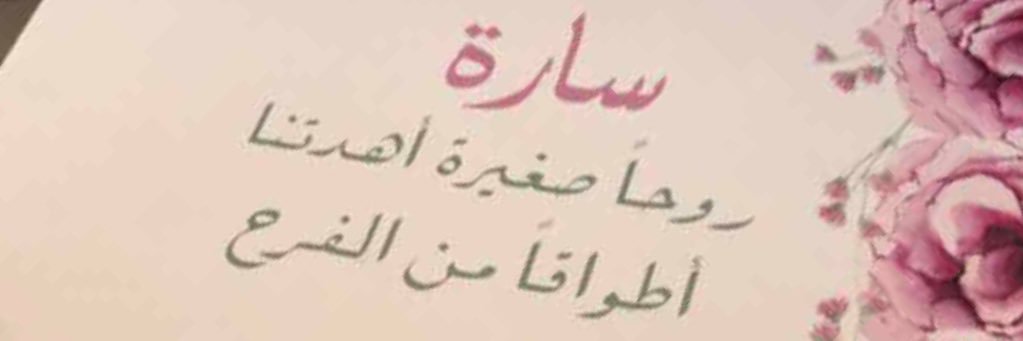 سارة
روحاً صغيرة أهدتنا
أطواقاً من الفرح